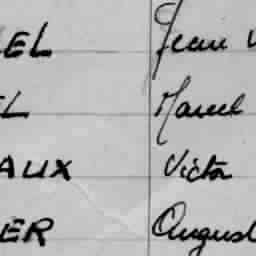 EL Jean V
EL Marcel
AUX Victor
ER August